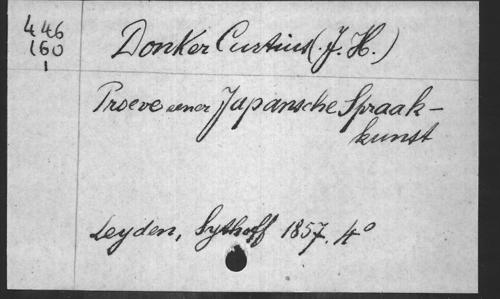 446
160
1
Donker Curtius (J. H.)
Proeve eener Japansche Spraak-
kunst
Leyden, Sythoff 1857. 4°